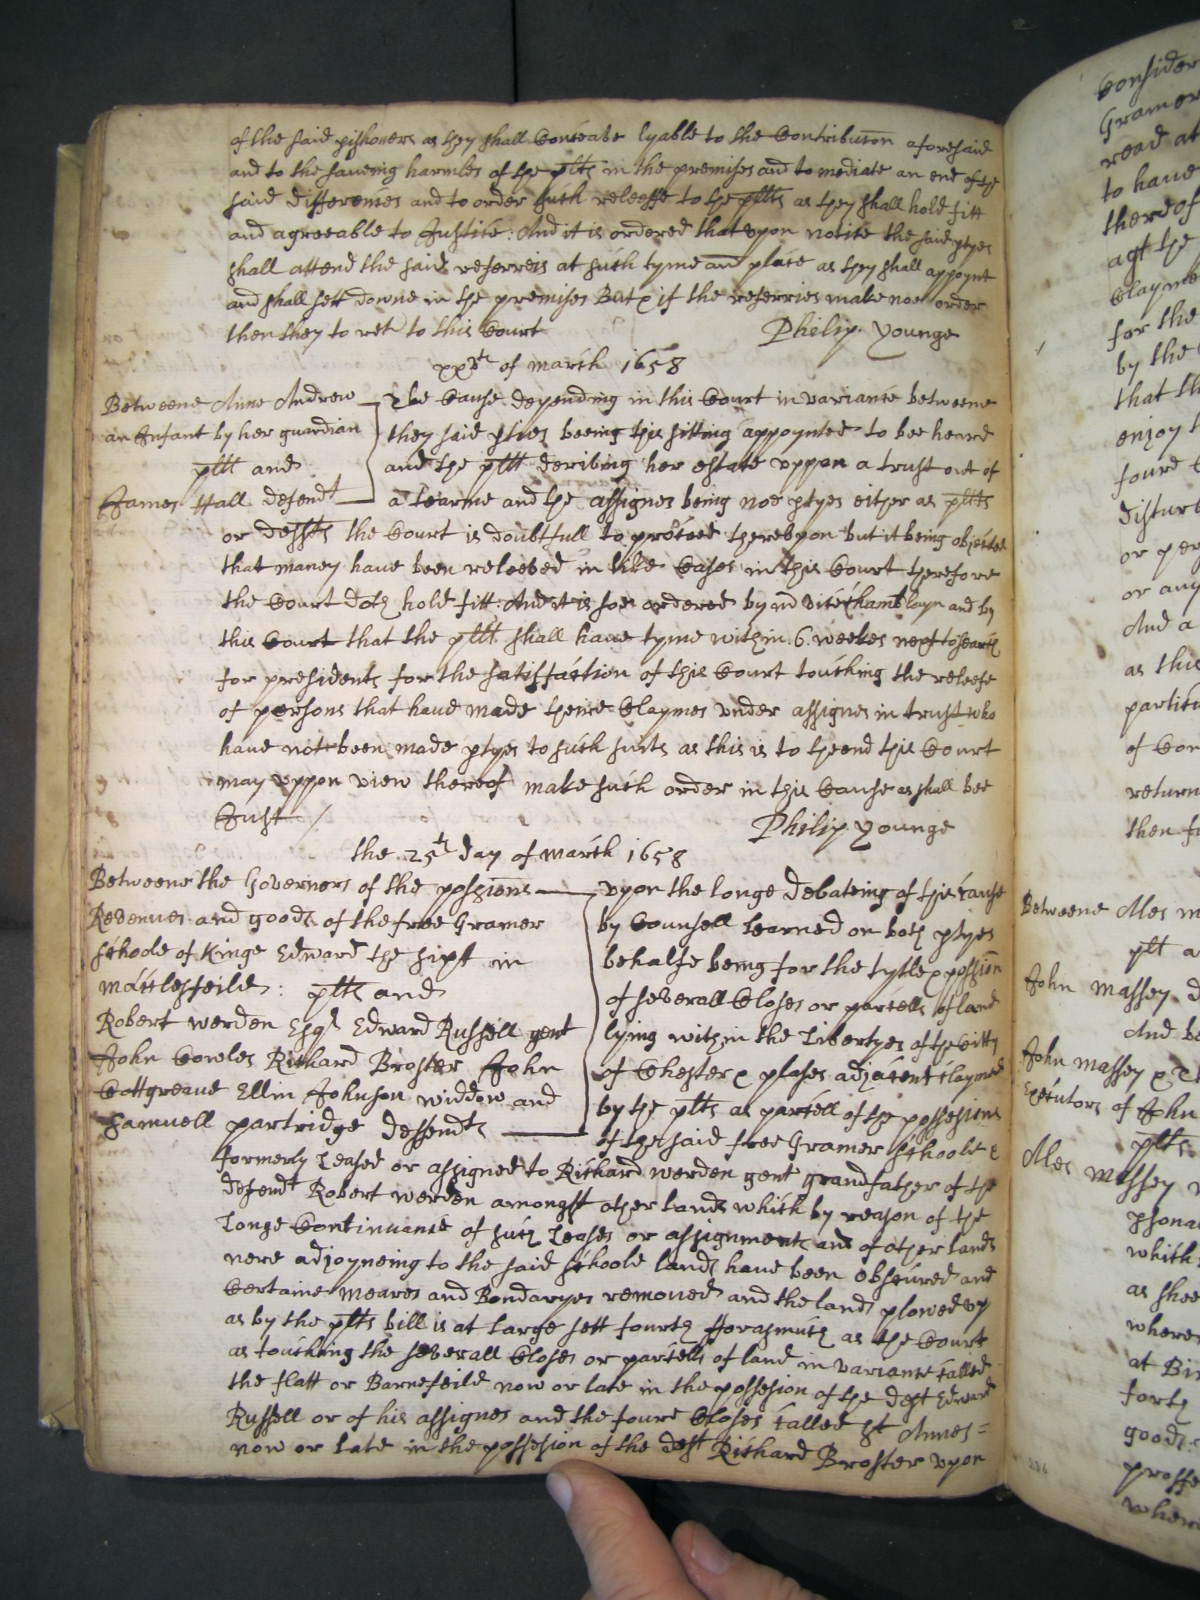 of the said pishoners as they shall Conceave lyable to the Contribucon aforesaid
and to the saueing harmles of the plts in the premises and to mediate an end of the
said differences and to order such releasse to the pllts as they shall hold fitt
and agreeable to Justice: And it is ordered that vpon notice the said ptyes
shall attend the said referrers at such tyme and place as they shall appoynt
and shall sett downe in the premises But if the referries make noe order
then they to ret to this Court
Philip Younge
xxvth of march 1658
Betweene Anne Andrew
an Infant by her guardian
pltt and
James Hall defendt
The Cause depending in this Court in variance betweene
they said pties beeing this sitting appoynted to bee heard
and the pltt deriving her estate vppon a trust out of
a tearme and the assignes being noe ptyes either as pltts
or deffts the Court is doubtfull to proceed therevpon but it being objected
that maney have been releeved in like Cases in this Court therefore
the Court doth hold fitt: And it is soe ordered by mr vice Chamblayn and by
this Court that the pltt shall haue tyme within 6 weekes next to search
for presidents for the satisfaction of this Court touching the releefe
of persons that haue made theire Claymes vnder assignes in trust who
haue not been made ptyes to such suits as this is to thend this Court
may vppon view thereof make such order in this Cause as shall bee
Just /
Philip Younge
the 25th day of march 1658
Betweene the Governors of the possions
Revenues and goods of the free Gramer
Schoole of Kinge Edward the sixt in
macclesfeild: plts and
Robert werden Esqr Edward Russell gent
John Cowles Richard Broster John
Cottgreaue Ellin Johnson widdow and
Samuell partridge deffendts
vpon the longe debateing of this cause
by Counsell Learned on both ptyes
behalfe being for the tytle & possion
of severall Closes or parcells of land
lying within the Libertyes of the Citty
of Chester & plases adjacent claymed
by the plts as parcell of the possessions
of the said free Gramer Schoole &
formerly Leased or assigned to Richard werden gent grandfather of the
defendt Robert werden amongst other lands which by reason of the
Longe Continuance of such Leases or assignments and of other lands
nere adjoyneing to the said schoole lands haue been obscured and
Certaine meares and Bondaryes remoued and the lands plowed vp
as by the pltts bill is at large sett fourth fforasmuch as the Court
as touching the severall Closes or parcells of land in variance called
the flatt or Barnefeild now or late in the possesion of the deft Edward
Russell or of his assignes and the foure Closes called St Annes =
now or late in the possesion of the deft Richard Broster vpon
Consider
Gramer
read at
to haue
thereof
agt the
Clayme
for the
by the
that th
enjoy t
foure C
disturb
or per
or any
And a
as this
particu
of Con
return
then f
Betweene Ales m
plt a
John massey d
And be
John massey
Executors of John
plts
Ales Massey
psonal
which
as shee
where
at Bir
forth
goods
prosse
wher